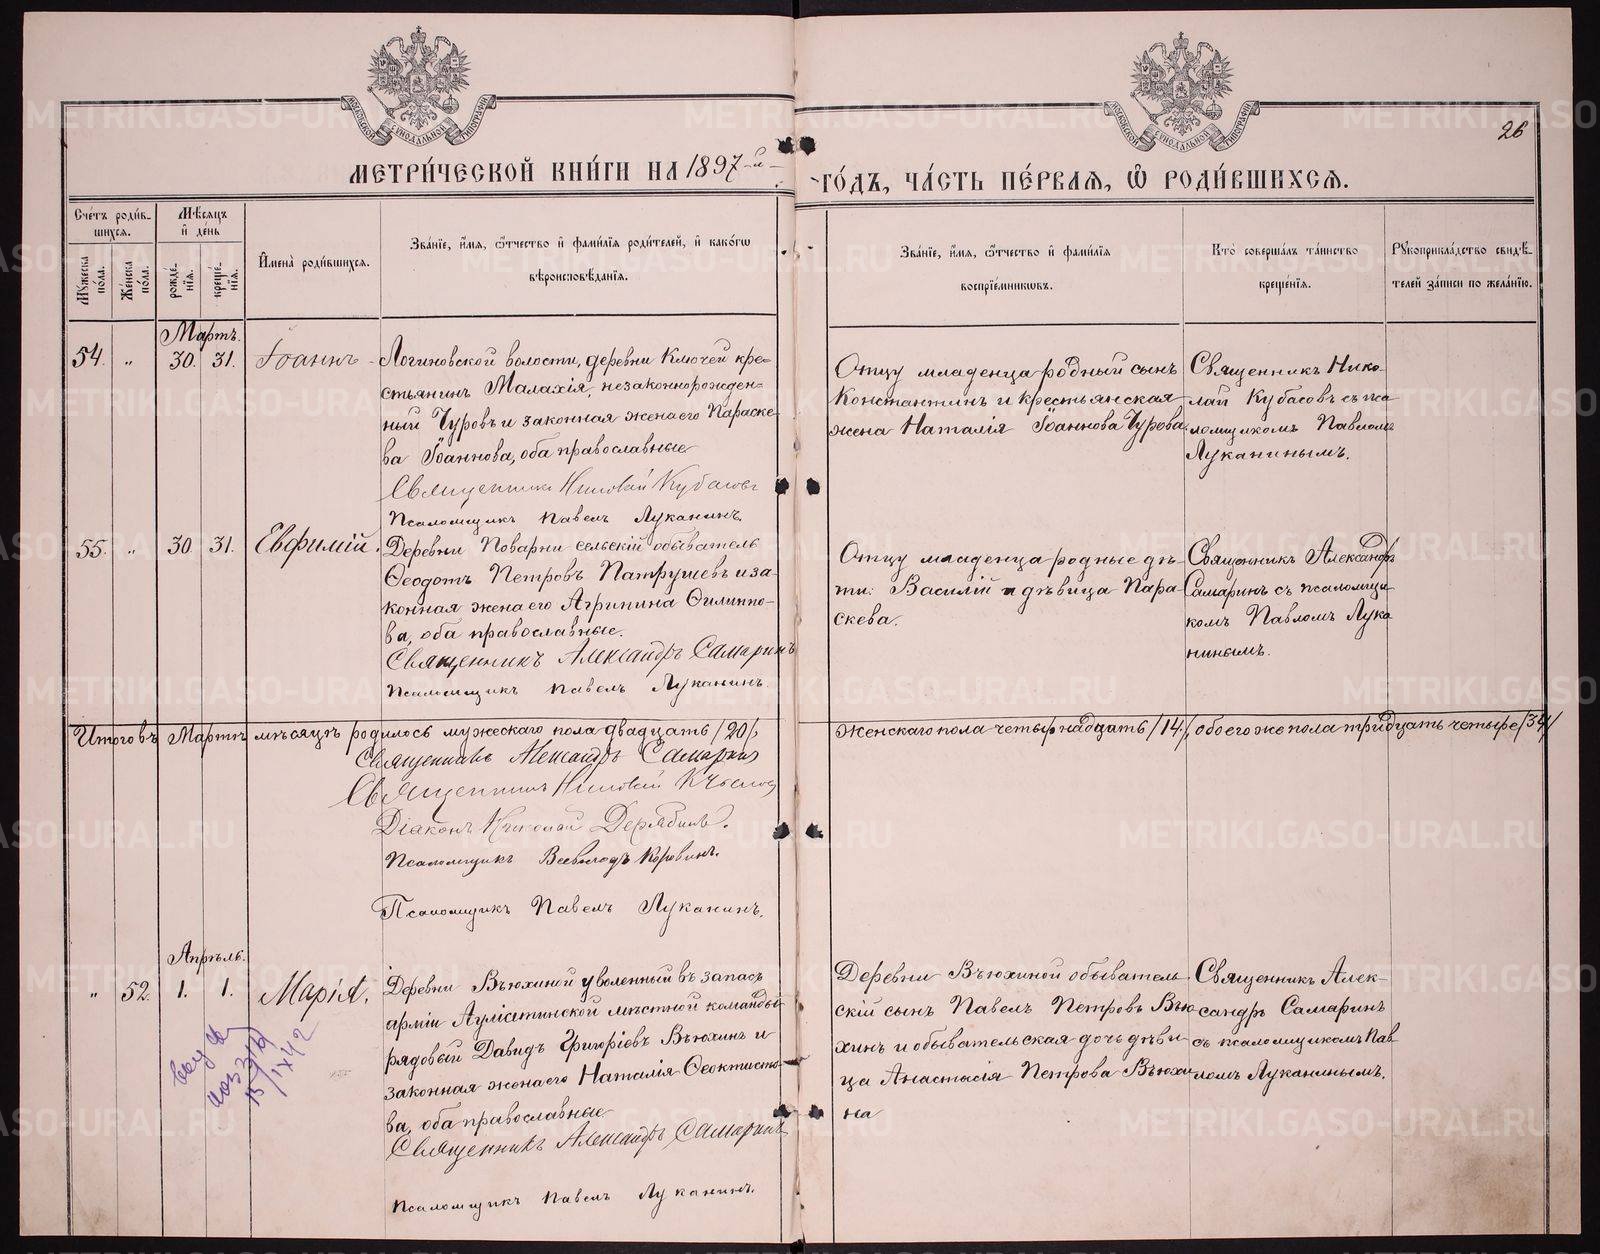 МОСКОВСКОЙ СѴНОДАЛЬНОЙ ТИПОГРАФІИ
МОСКОВСКОЙ СѴНОДАЛЬНОЙ ТИПОГРАФІИ
26
МЕТРИ́ЧЕСКОЙ КНИ́ГИ НА 1897-й
ГО́ДЪ, ЧА́СТЬ ПЕ́РВАЯ, Ѽ РОДИ́ВШИХСЯ.
Сче́тъ роди́в-
шихся.
Мꙋ́жеска по́ла.
Же́нска по́ла.
Мѣ́сяцъ
и҆ де́нь
рожде́нїя.
креще́нїя.
И҆мена̀ роди́вшихся.
Зва́нїе, и҆́мя, ѻ҆́тчество и҆ фами́лїя роди́телей, и҆ како́гѡ
вѣроисповѣ́данїя.
Зва́нїе, и҆́мя, ѻ҆́тчество и҆ фами́лїя
воспрїе́мникѡвъ.
Кто̀ соверша́лъ та́инство
креще́нїя.
Рꙋкоприкла́дство свидѣ́-
телей за́писи по жела́нїю.
Мартъ.
54. " 30. 31. Іоаннъ
Логиновской волости, деревни Ключей кре-
стьянинъ Малахія, незаконнорожден-
ный Чуровъ и законная жена его Параске-
ва Іоаннова, оба православные
Священникъ Николай Кубасовъ
Псаломщикъ Павелъ Луканинъ.
Отцу младенца родный сынъ
Константинъ и крестьянская
жена Наталія Іоаннова Чурова.
Священникъ Нико-
лай Кубасовъ съ пса
ломщикомъ Павломъ
Луканинымъ.
55. " 30. 31. Евфимій.
Деревни Поварни сельскій обыватель
Ѳеодотъ Петровъ Патрушевъ и за-
конная жена его Агрипина Филиппо-
ва, оба православные.
Священникъ Александръ Самаринъ
Псаломщикъ Павелъ Луканинъ.
Отцу младенца родные дѣ-
ти: Василій и дѣвица Пара-
скева.
Священникъ Александръ
Самаринъ съ псаломщи-
комъ Павломъ Лука
нинымъ.
Итого въ Мартѣ мѣсяцѣ родилось мужескаго пола двадцать /20/
женскаго пола четырнадцать /14/, обоего же пола тридцать четыре /34/
Священникъ Александръ Самаринъ
Священникъ Николай Кубасовъ
Діаконъ Николай Дерябинъ.
Псаломщикъ Всеволодъ Коровинъ.
Псаломщикъ Павелъ Луканинъ.
Апрѣль.
" 52. 1. 1. Марія.
Деревни Вьюхиной уволенный въ запасъ
арміи Аулиетинской мѣстной команды
рядовый Давидъ Григоріевъ Вьюхинъ и
законная жена его Наталія Ѳеоктисто-
ва, оба православные
Священникъ Александръ Самаринъ
Псаломщикъ Павелъ Луканинъ.
Деревни Вьюхиной обыватель-
скій сынъ Павелъ Петровъ Вью-
хинъ и обывательская дочь дѣви-
ца Анастасія Петрова Вьюхи
на
Священникъ Алек-
сандръ Самаринъ
съ псаломщикомъ Пав
ломъ Луканинымъ.
METRIKI.GASO-URAL.RU